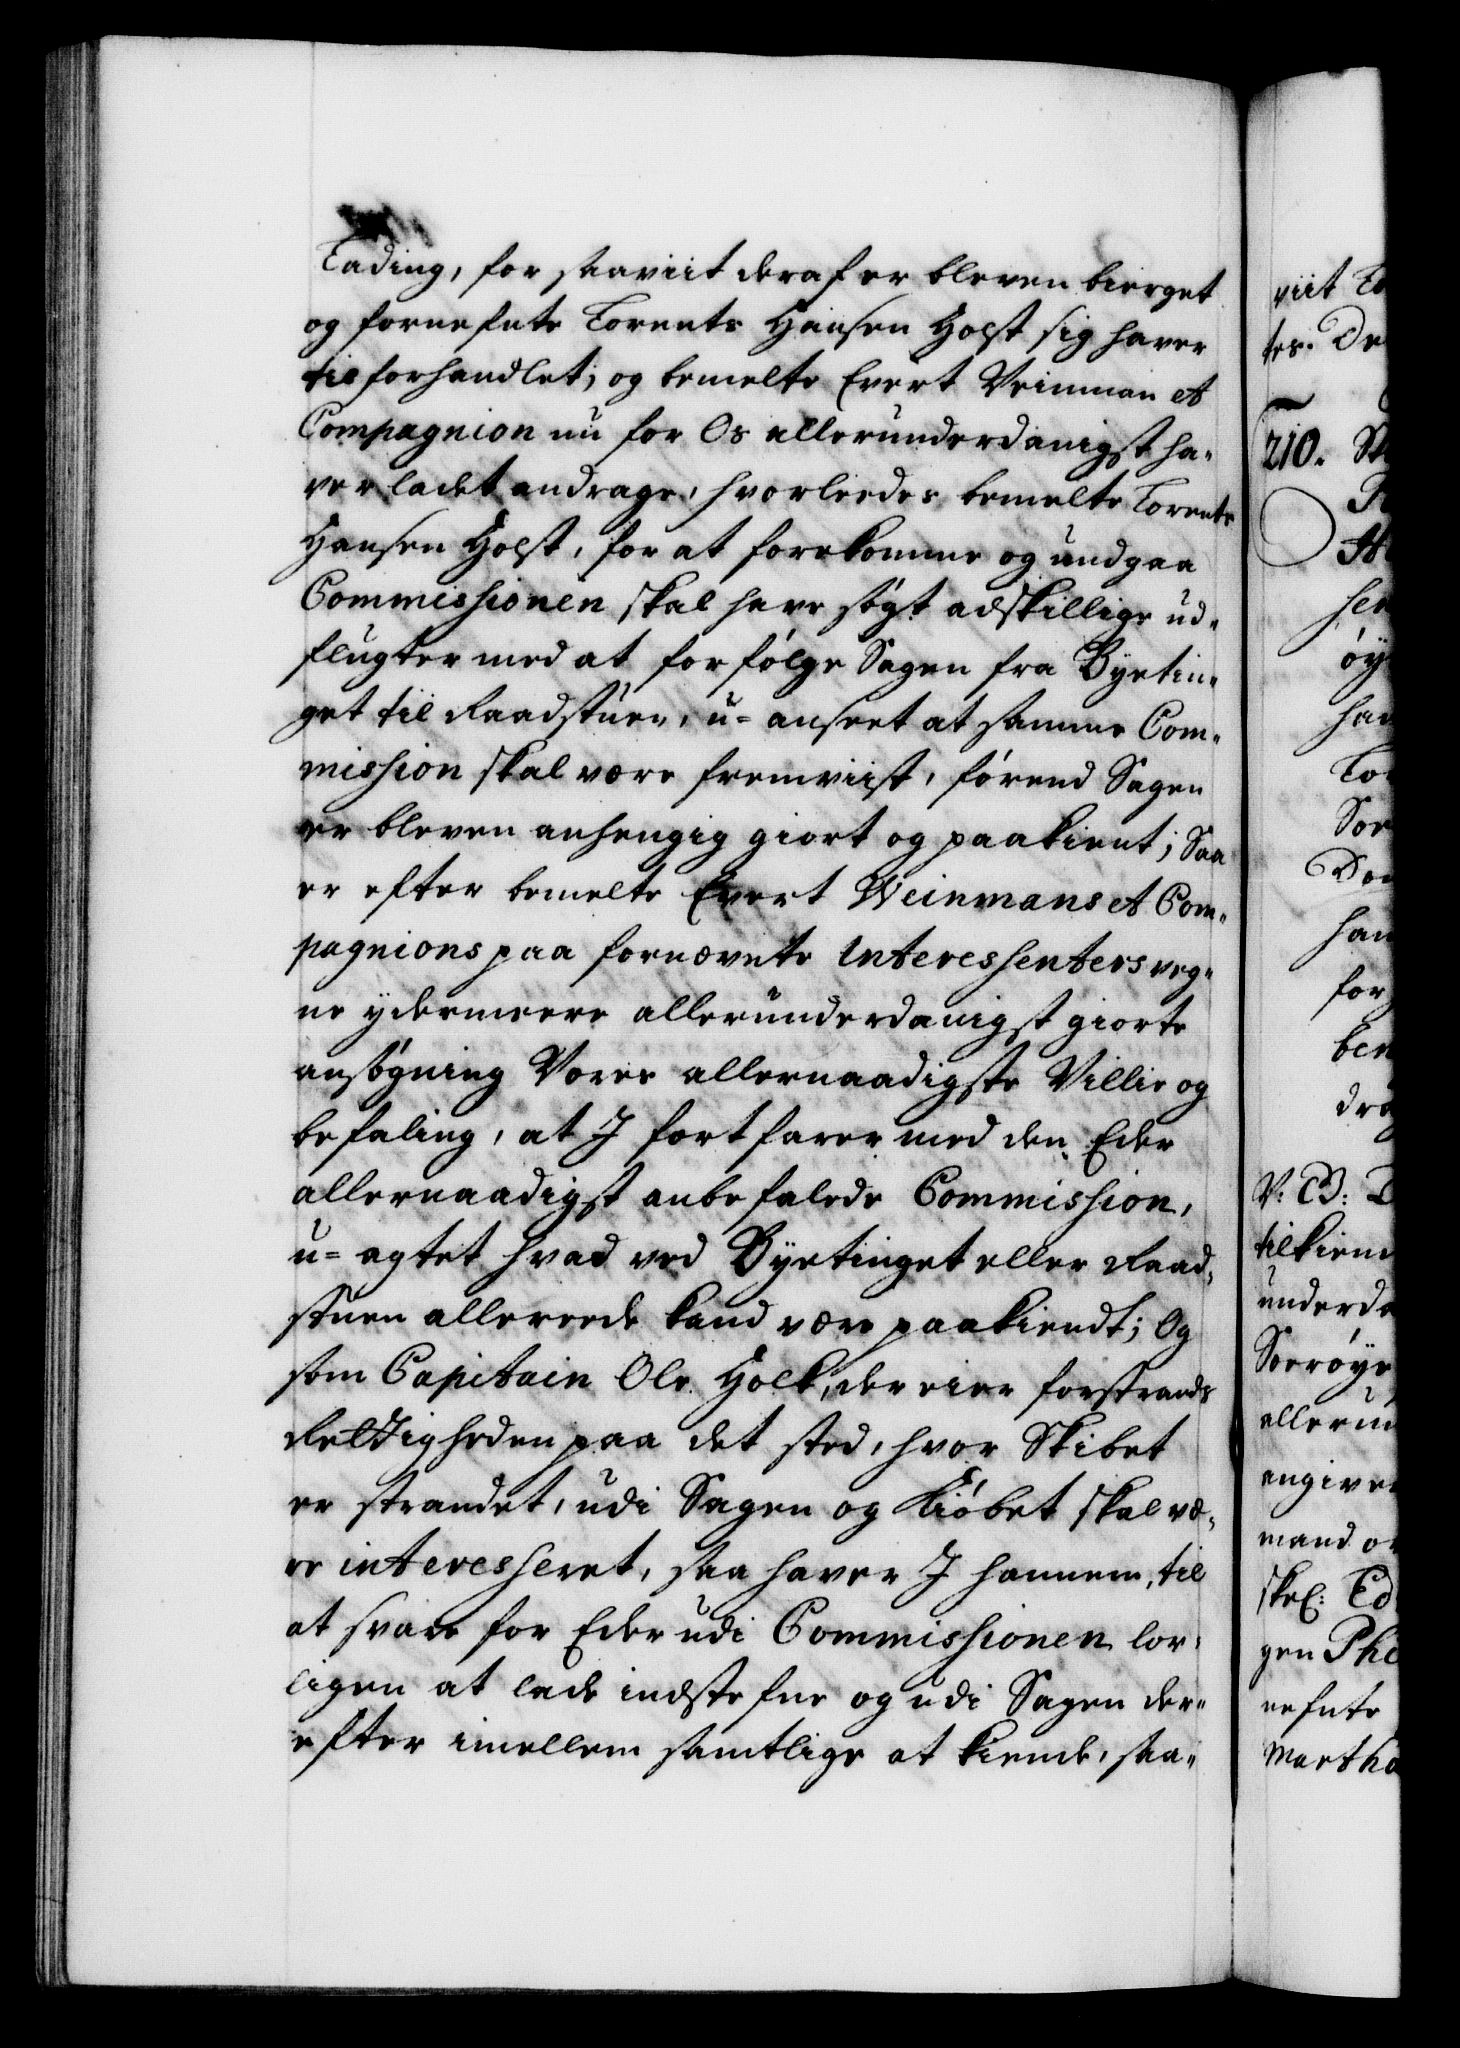 Lading, for saaviit deraf er bleven bierget
og fornefnte Lorents Hansen Holst sig haver
tilforhandlet; og bemelte Evert Weinman et
Compagnion nu for Os allerunderdanigst ha-
ver ladet andrage, hvorleedes bemelte Lorents
Hansen Holst, for at forekomme og undgaa
Commissionen skal have søgt adskillige ud-
flugter med at forfølge Sagen fra Byetin-
get til Raadstuen, u-anseet at samme Com-
mission skal være fremviist, førend Sagen
er bleven anhengig giort og paakient; Saa
er efter bemelte Evert Weinmans et Com-
pagnions paa fornævnte Interessenters veg-
ne ydermeere allerunderdanigst giorte
ansøgning Vores allernaadigste Villie og
befaling, at I fortfarer med den Eder
allernaadigst anbefalede Commission,
u-agtet hvad ved Byetinget eller Raad-
stuen allereede kand være paakiendt; Og
som Capitain Ole Holck, der eier forstrands
Rettigheden paa det sted, hvor Skibet
er strandet, udi Sagen og Kiøbet skal væ-
re interesseret, saa haver I hannem, til
at svare for Eder udi Commissionen lov-
ligen at lade indstefne og udi Sagen der-
efter imellem samtlige at kiende, saa-
viit
tes.
210.
tilkiend